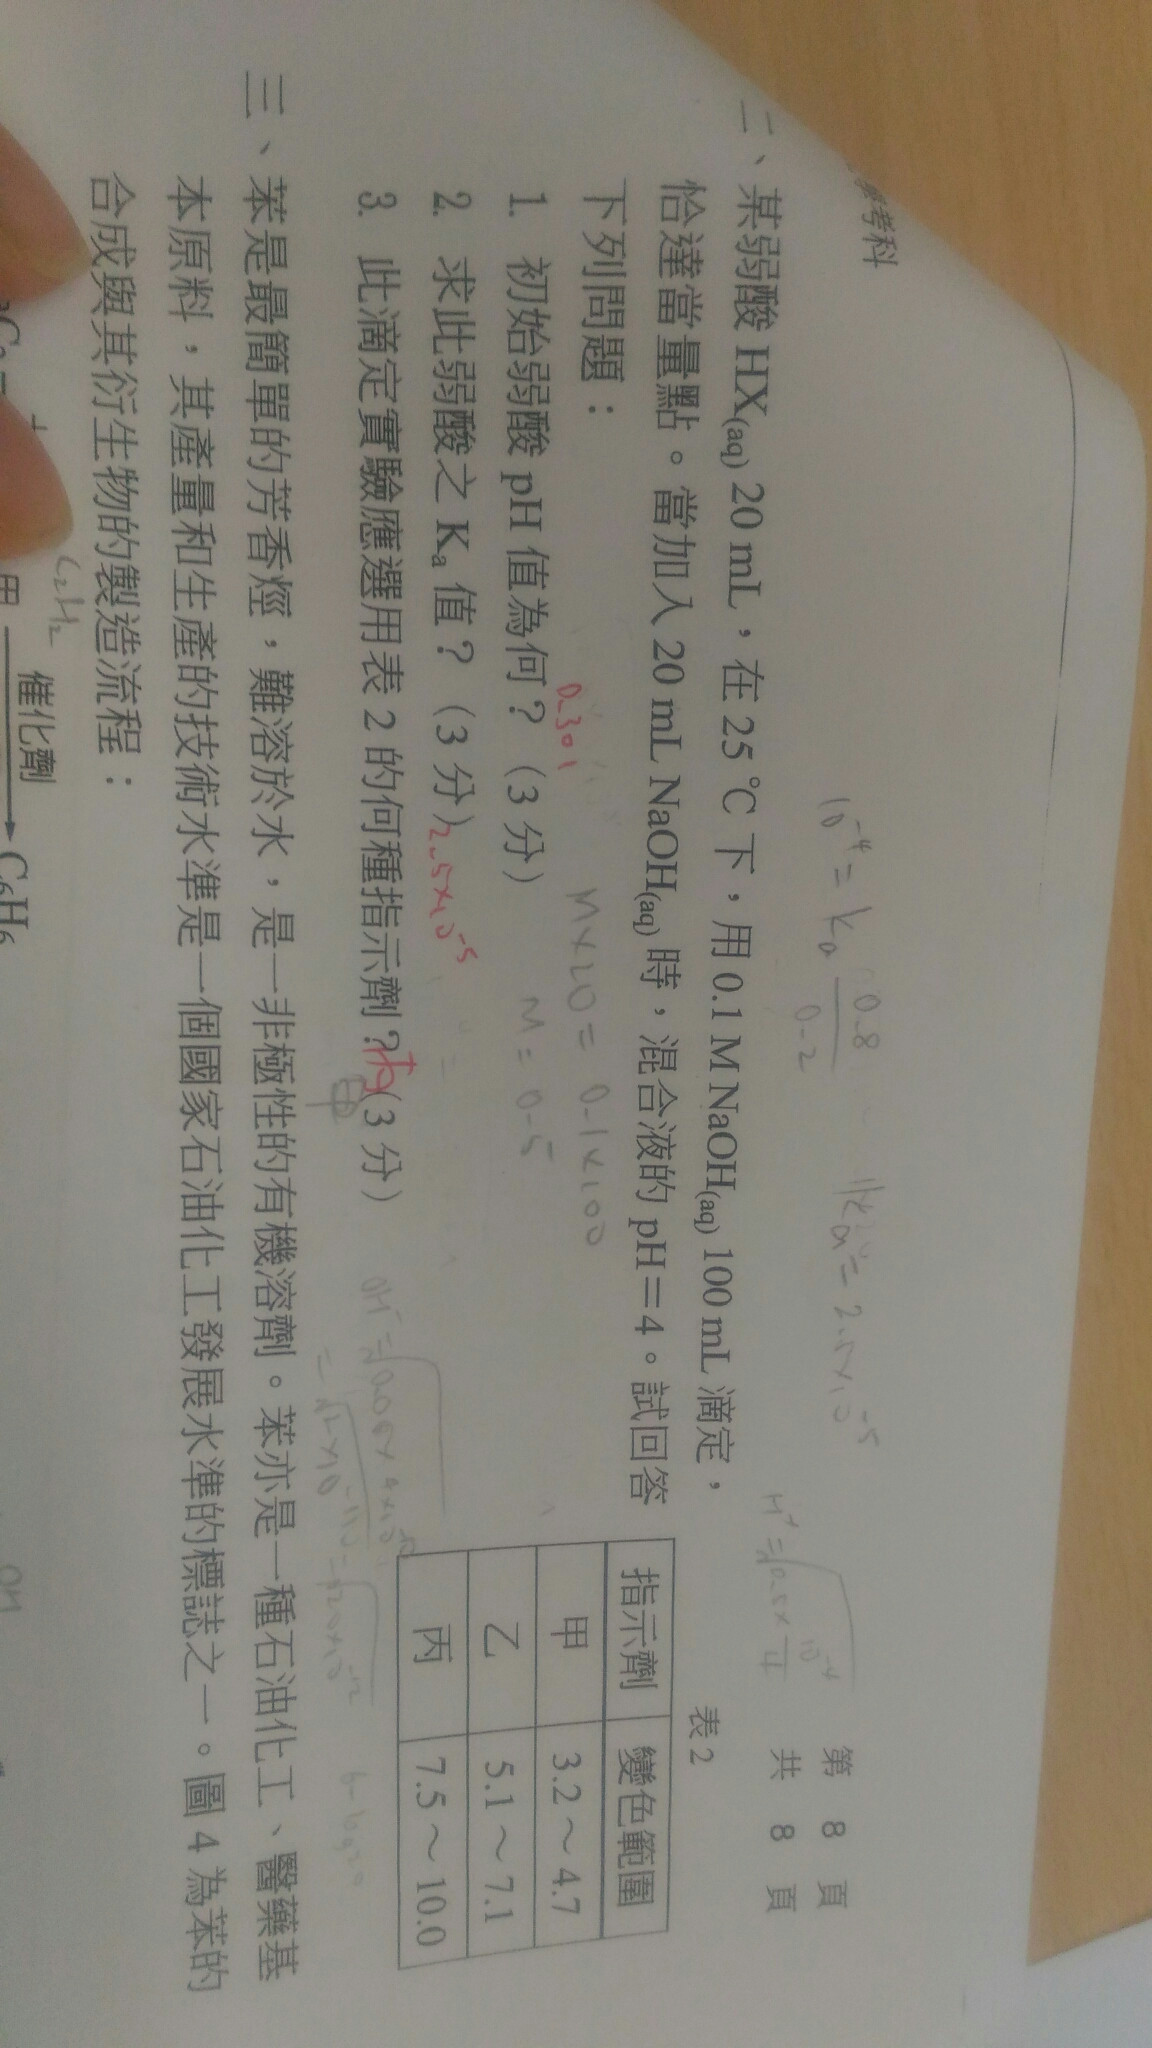 考科
第 8 頁
共 8 頁
10⁻⁴ = ka 0.8/0.2
ka = 2.5×10⁻⁵
二、某弱酸 HX(aq) 20 mL,在 25 ℃ 下,用 0.1 M NaOH(aq) 100 mL 滴定,
恰達當量點。當加入 20 mL NaOH(aq) 時,混合液的 pH=4。試回答
下列問題:
M×20 = 0.1×100
M = 0.5
0.301
1. 初始弱酸 pH 值為何?(3 分)
2. 求此弱酸之 Ka 值?(3 分)
2.5×10⁻⁵
3. 此滴定實驗應選用表 2 的何種指示劑?(3 分)
表 2
指示劑 變色範圍
甲 3.2~4.7
乙 5.1~7.1
丙 7.5~10.0
三、苯是最簡單的芳香烴,難溶於水,是一非極性的有機溶劑。苯亦是一種石油化工、醫藥基
本原料,其產量和生產的技術水準是一個國家石油化工發展水準的標誌之一。圖 4 為苯的
合成與其衍生物的製造流程:
C₂H₂
甲 催化劑 C₆H₆
OH